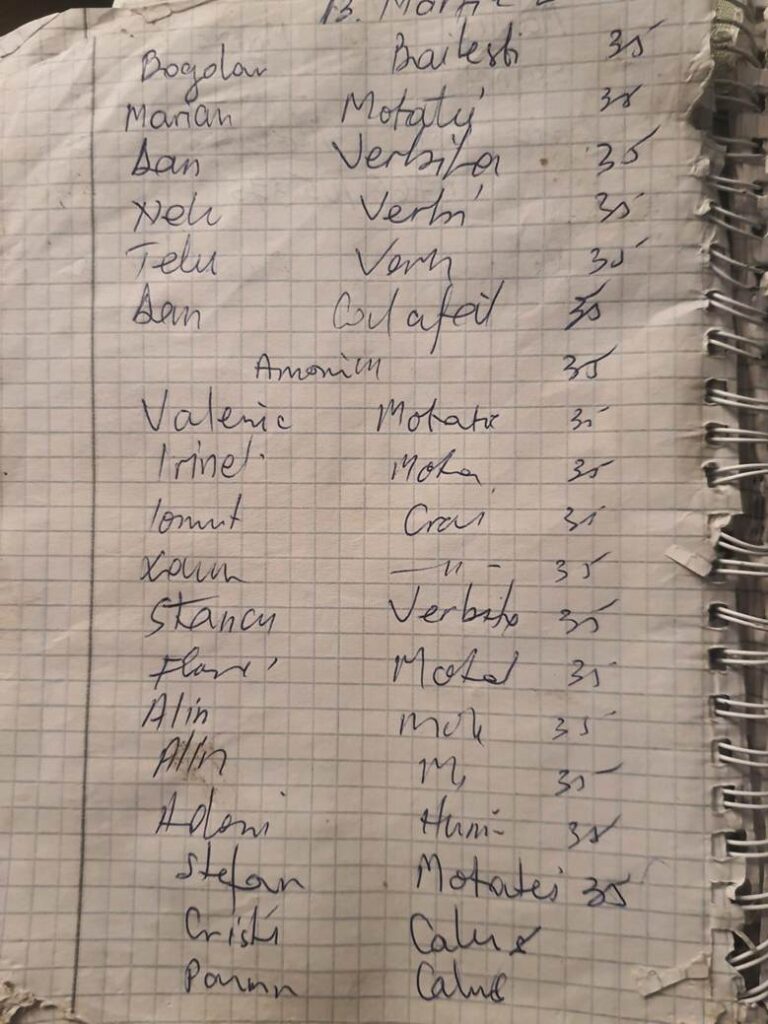 13. Martie
Bogdan Bailesti 35
Marian Motatei 35
Dan Verbita 35
Nelu Verbi 35
Telu Verb 35
Dan Calafat 35
35
Valeric Motatei 35
Irinel Mota 35
Ionut Crai 35
—"- 35
Stancu Verbita 35
Mota 35
Alin Mot 35
Alin M 35
Adoni Huni- 35
Stefan Motatei 35
Cristi Calu
Calu